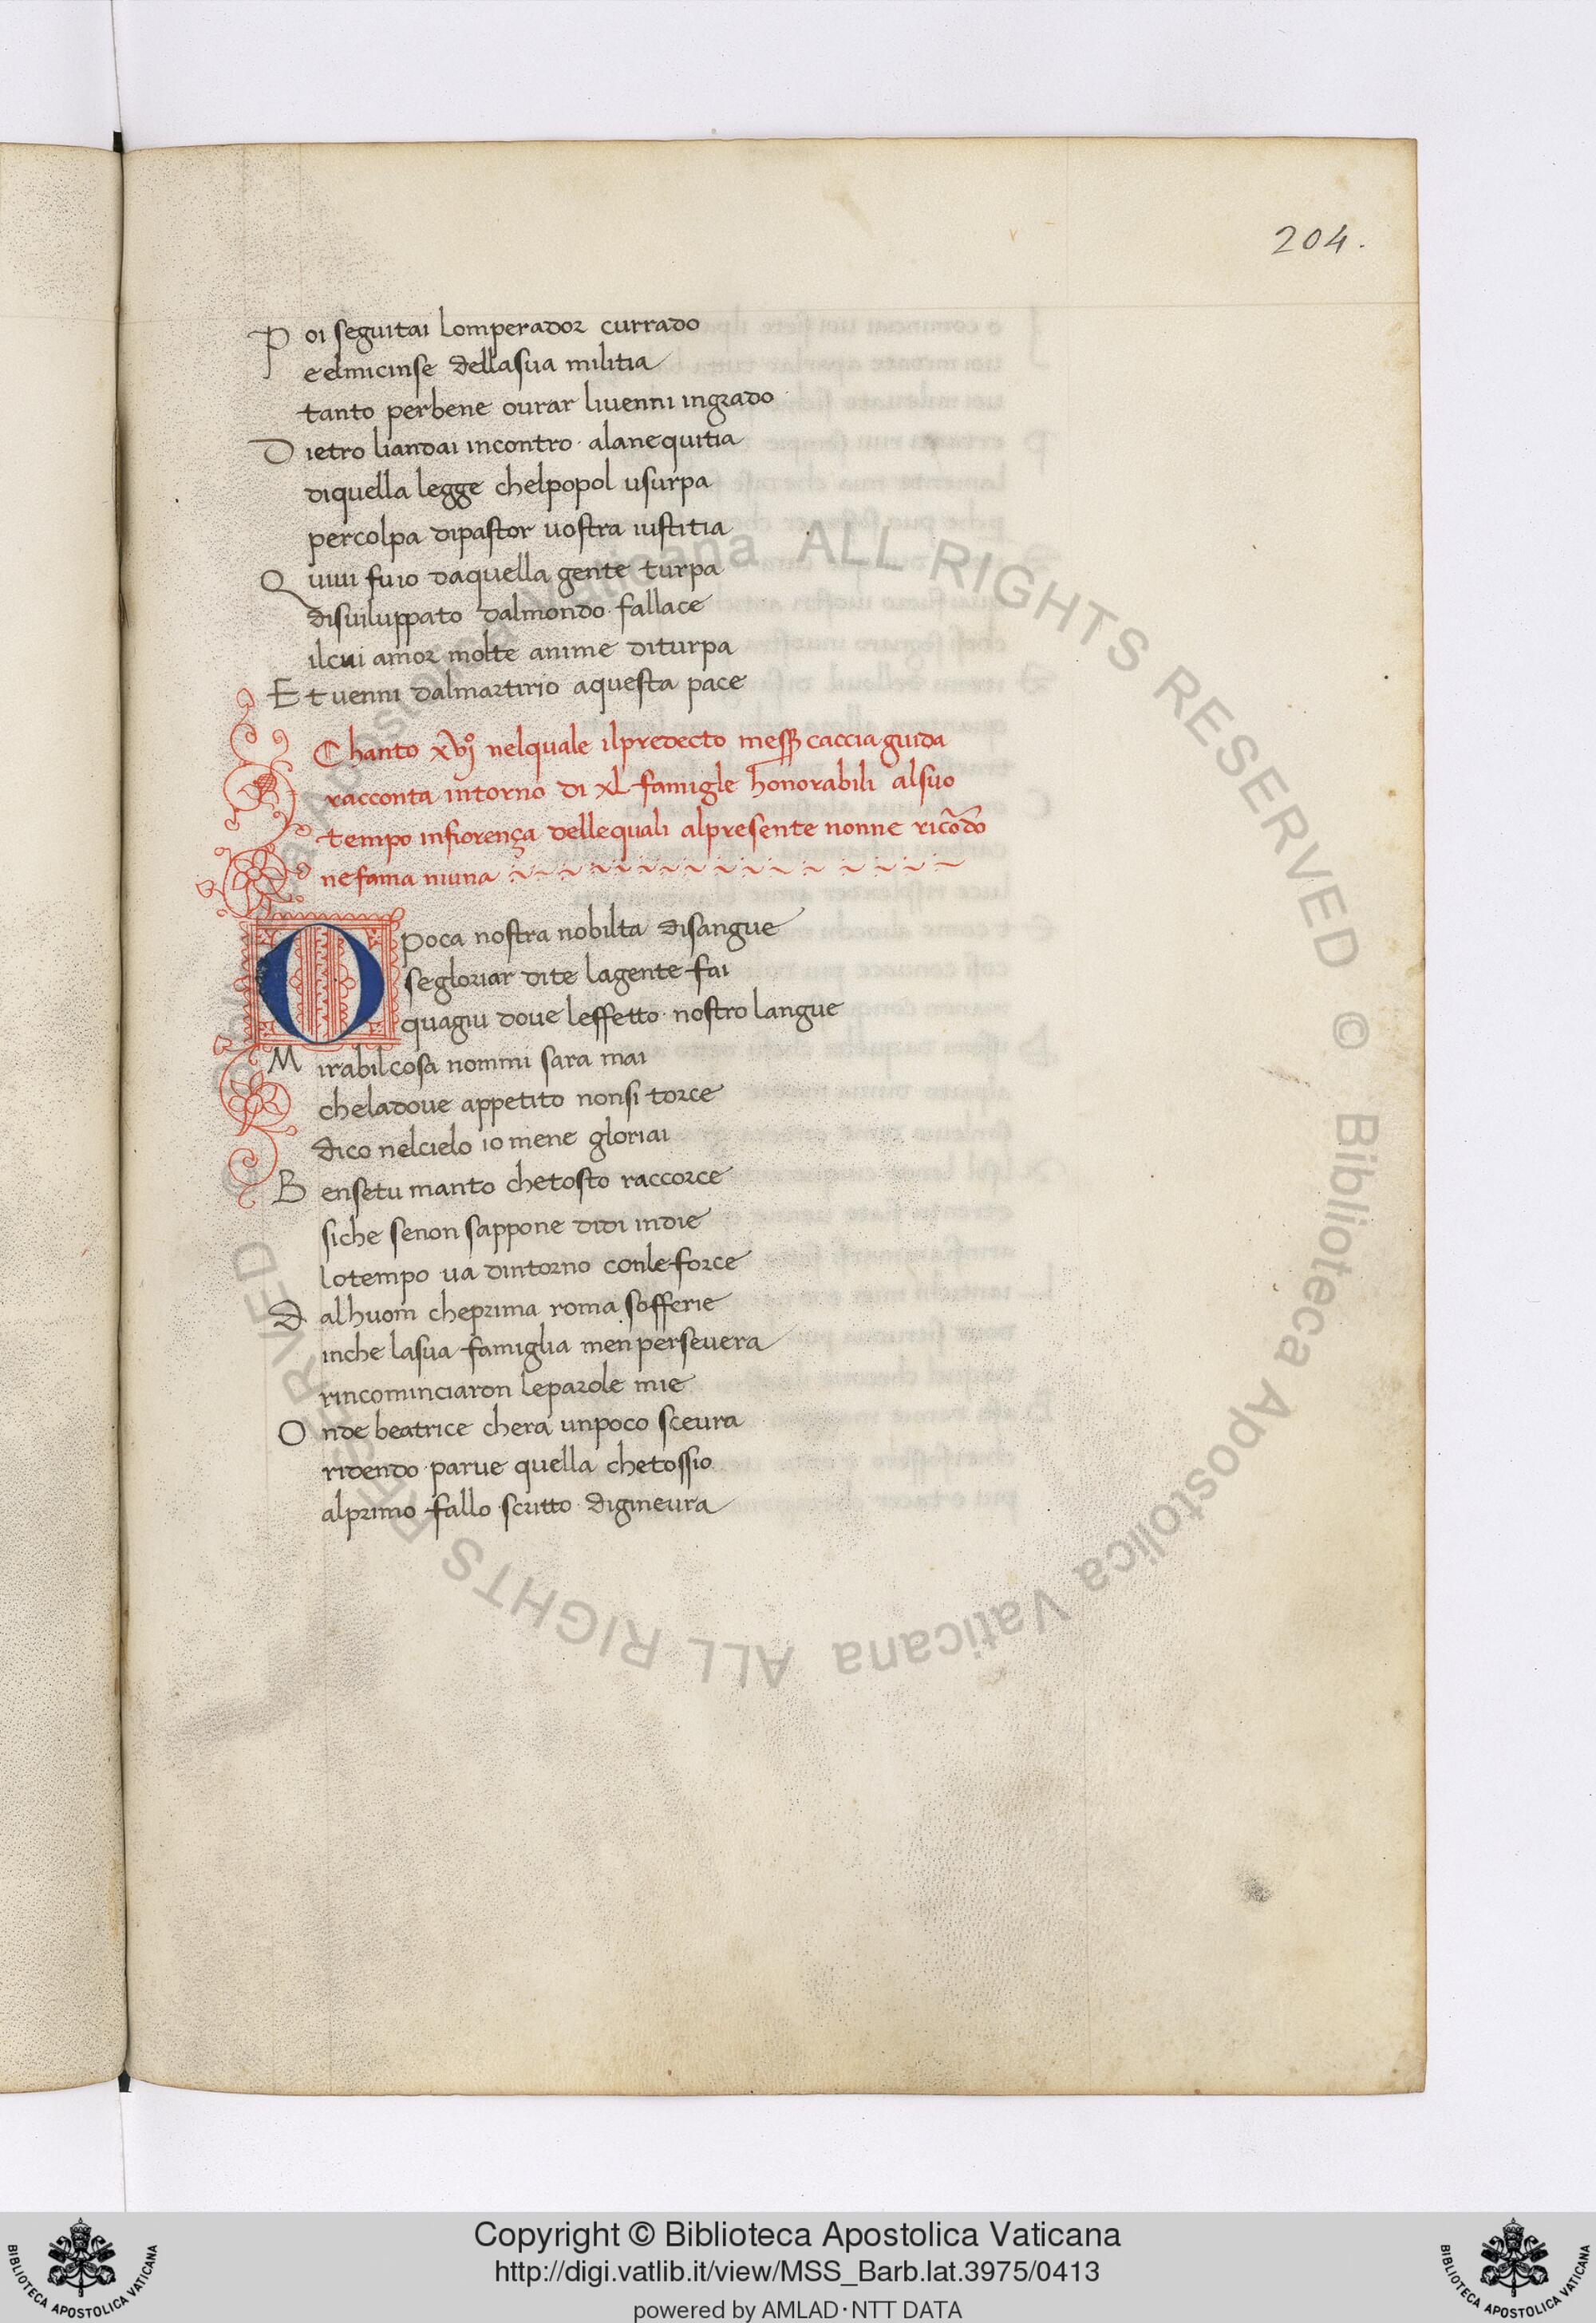 204.
Poi seguitai lomperador currado
e elmicinse dellasua militia
tanto perbene ourar liuenni ingrado
Dietro liandai incontro alanequitia
diquella legge chelpopol usurpa
percolpa dipastor uostra iustitia
Quiui fuio daquella gente turpa
disuiluppato dalmondo fallace
ilcui amor molte anime diturpa
Et uenni dalmartirio aquesta pace
Chanto xvjº nelquale ilpredecto mess caccia guida
racconta intorno di xl famigle honorabili alsuo
tempo infiorença dellequali alpresente nonne ricõdo
nefama niuna
O poca nostra nobilta disangue
segloriar dite lagente fai
quagiu doue leffetto nostro langue
Mirabilcosa nommi sara mai
cheladoue appetito nonsi torce
dico nelcielo io mene gloriai
Bensetu manto chetosto raccorce
siche senon sappone didi indie
lotempo ua dintorno conle force
Dalhuom cheprima roma sofferie
inche lasua famiglia men perseuera
rincominciaron leparole mie
Onde beatrice chera unpoco sceura
ridendo parue quella chetossio
alprimo fallo scritto digineura
© Biblioteca Apostolica Vaticana ALL RIGHTS RESERVED © Biblioteca Apostolica Vaticana ALL RIGHTS RESERVED
Copyright © Biblioteca Apostolica Vaticana
http://digi.vatlib.it/view/MSS_Barb.lat.3975/0413
powered by AMLAD·NTT DATA
BIBLIOTECA APOSTOLICA VATICANA
BIBLIOTECA APOSTOLICA VATICANA